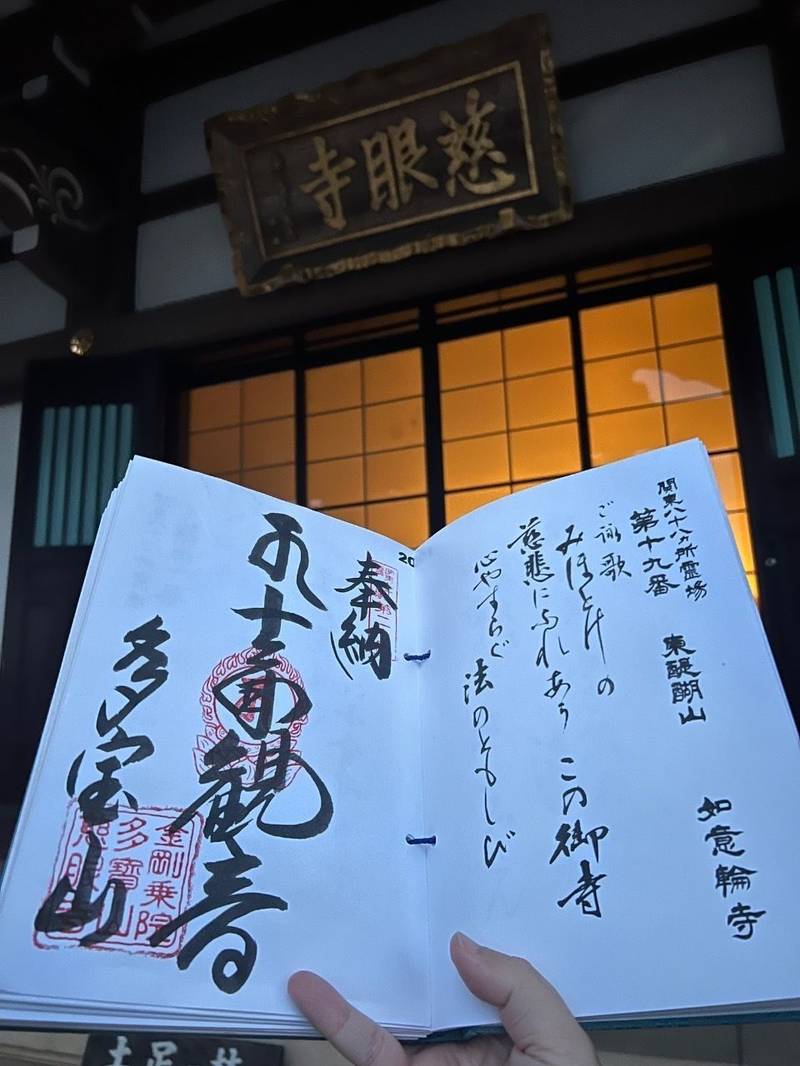 慈眼寺
関東八十八ヶ所霊場
第十九番
東醍醐山
如意輪寺
ご詠歌
みほとけの
慈悲にふれあう この御寺
心やすらぐ 法のともしび
20
奉納
十一面観音
多宝山
金剛乗院
多寶山
慈眼寺
土足